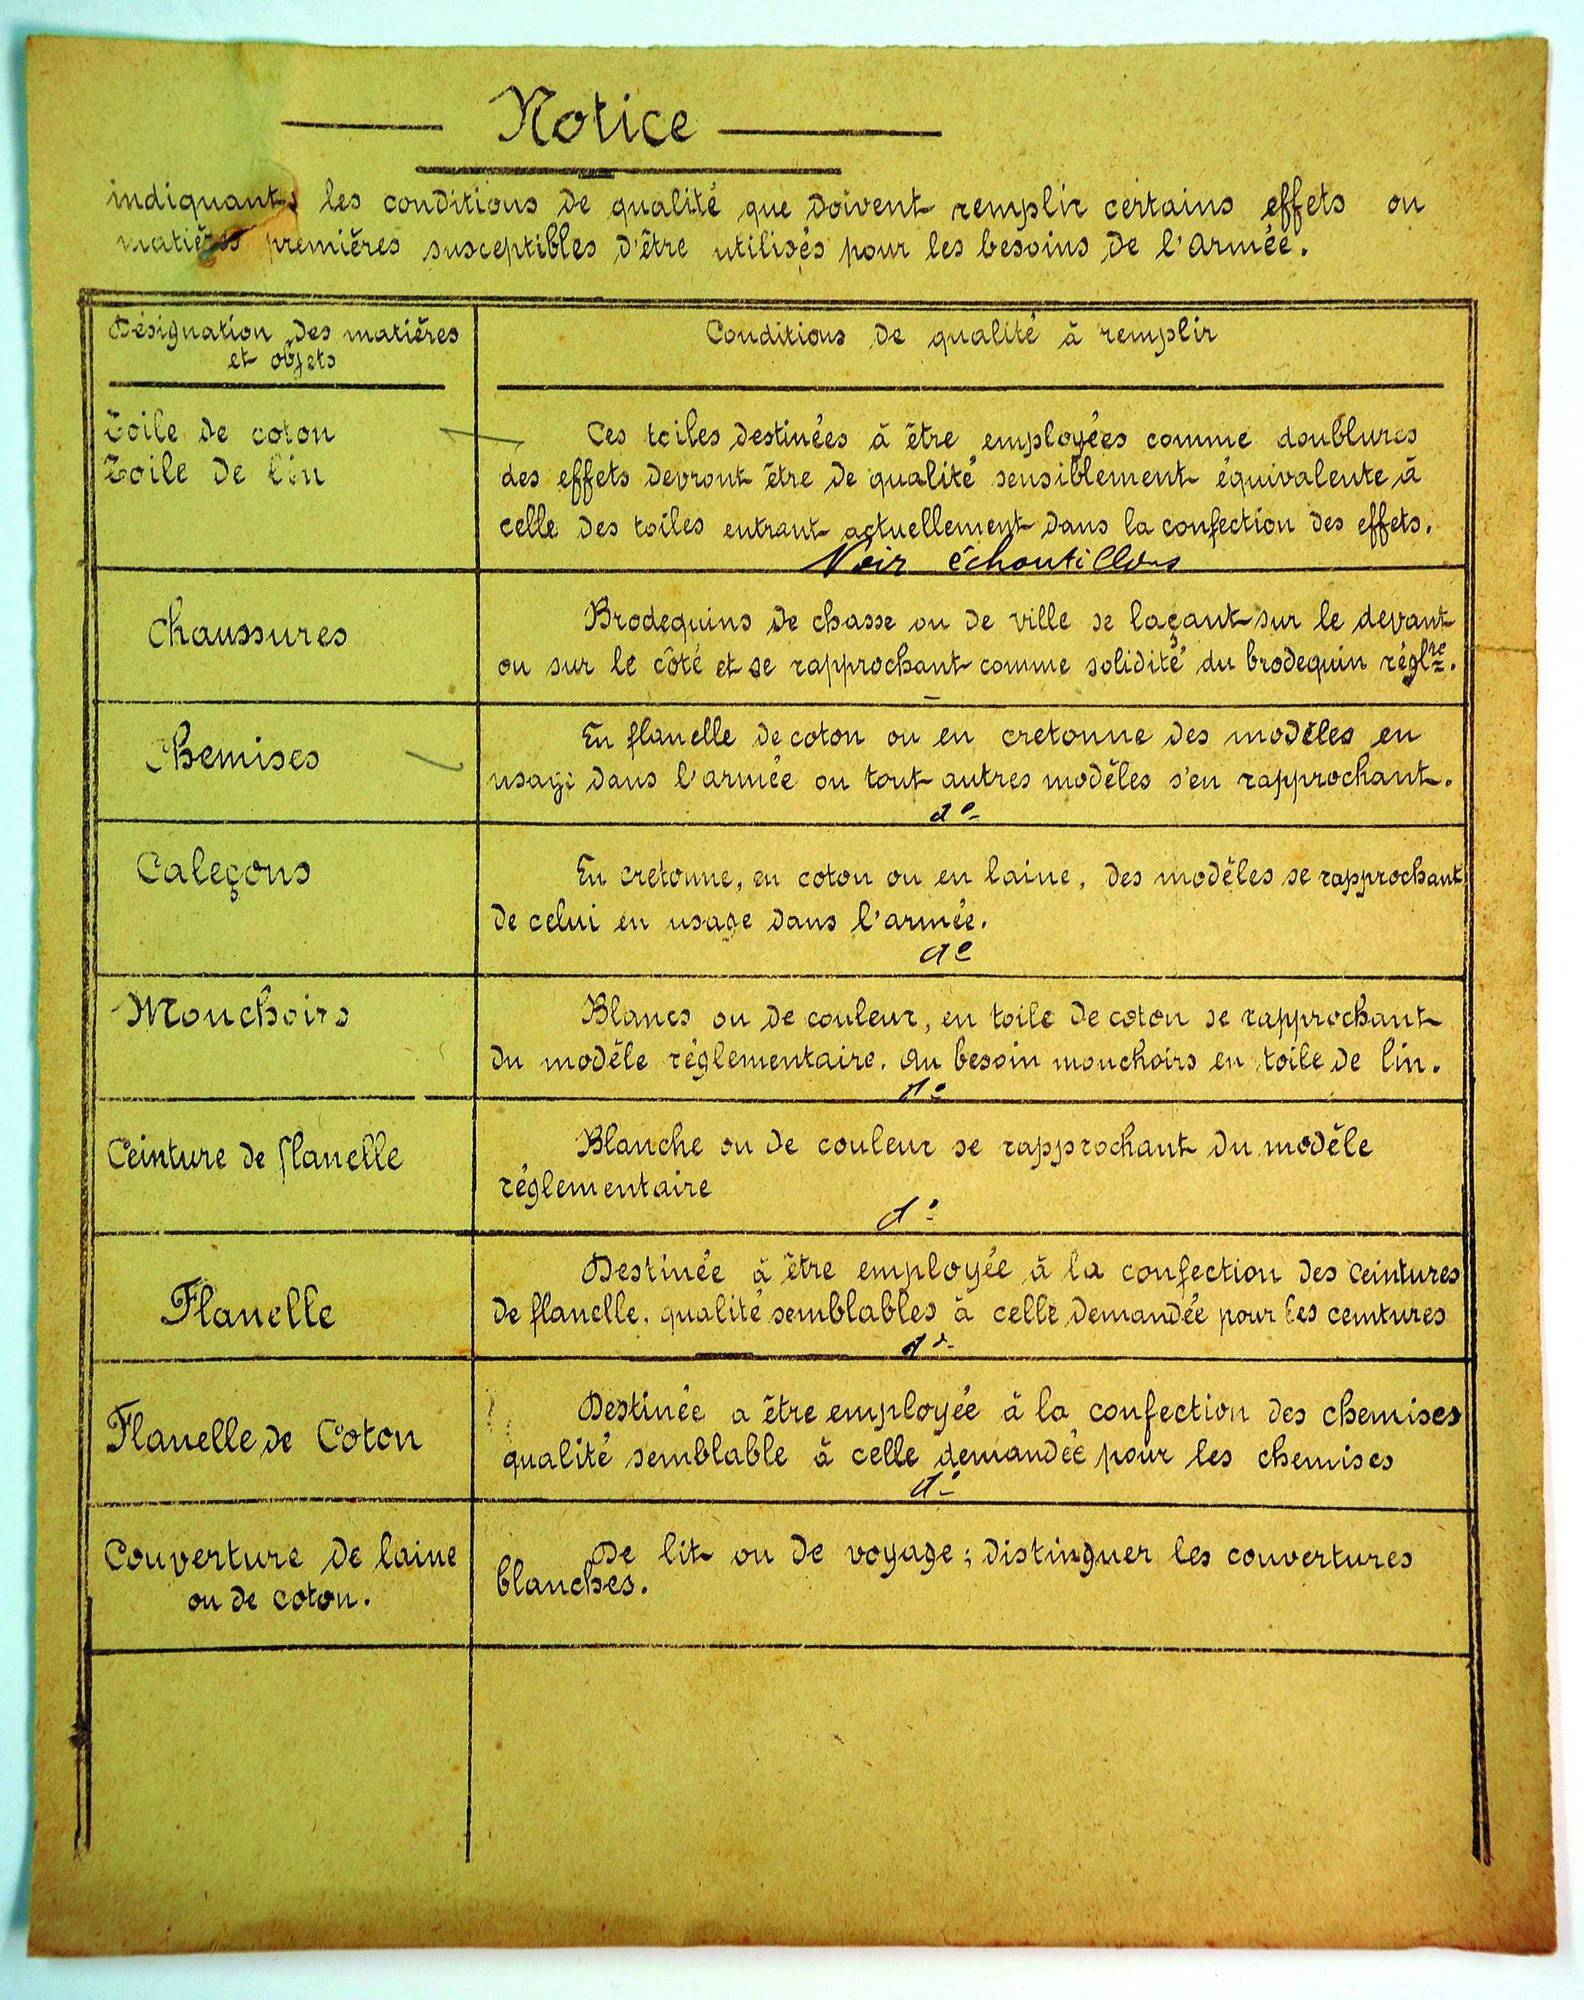 Notice
indiquant les conditions de qualité que doivent remplir certains effets ou
matières premières susceptibles d'être utilisés pour les besoins de l'Armée.
Désignation des matières
et objets
Conditions de qualité à remplir
Toile de coton
Toile de lin
Ces toiles destinées à être employées comme doublures
des effets devront être de qualité sensiblement équivalente à
celle des toiles entrant actuellement dans la confection des effets.
Voir échantillons
Chaussures
Brodequins de chasse ou de ville se laçant sur le devant
ou sur le côté et se rapprochant comme solidité du brodequin régl.re.
Chemises
En flanelle de coton ou en cretonne des modèles en
usage dans l'armée ou tout autres modèles s'en rapprochant.
do
Caleçons
En cretonne, en coton ou en laine, des modèles se rapprochant
de celui en usage dans l'armée.
do
Mouchoirs
Blancs ou de couleur, en toile de coton se rapprochant
du modèle réglementaire. Au besoin mouchoirs en toile de lin.
do
Ceinture de flanelle
Blanche ou de couleur se rapprochant du modèle
réglementaire
do
Flanelle
Destinée à être employée à la confection des ceintures
de flanelle, qualité semblables à celle demandée pour les ceintures
do
Flanelle de Coton
Destinée a être employée à la confection des chemises
qualité semblable à celle demandée pour les chemises
do
Couverture de laine
ou de coton.
De lit ou de voyage ; distinguer les couvertures
blanches.